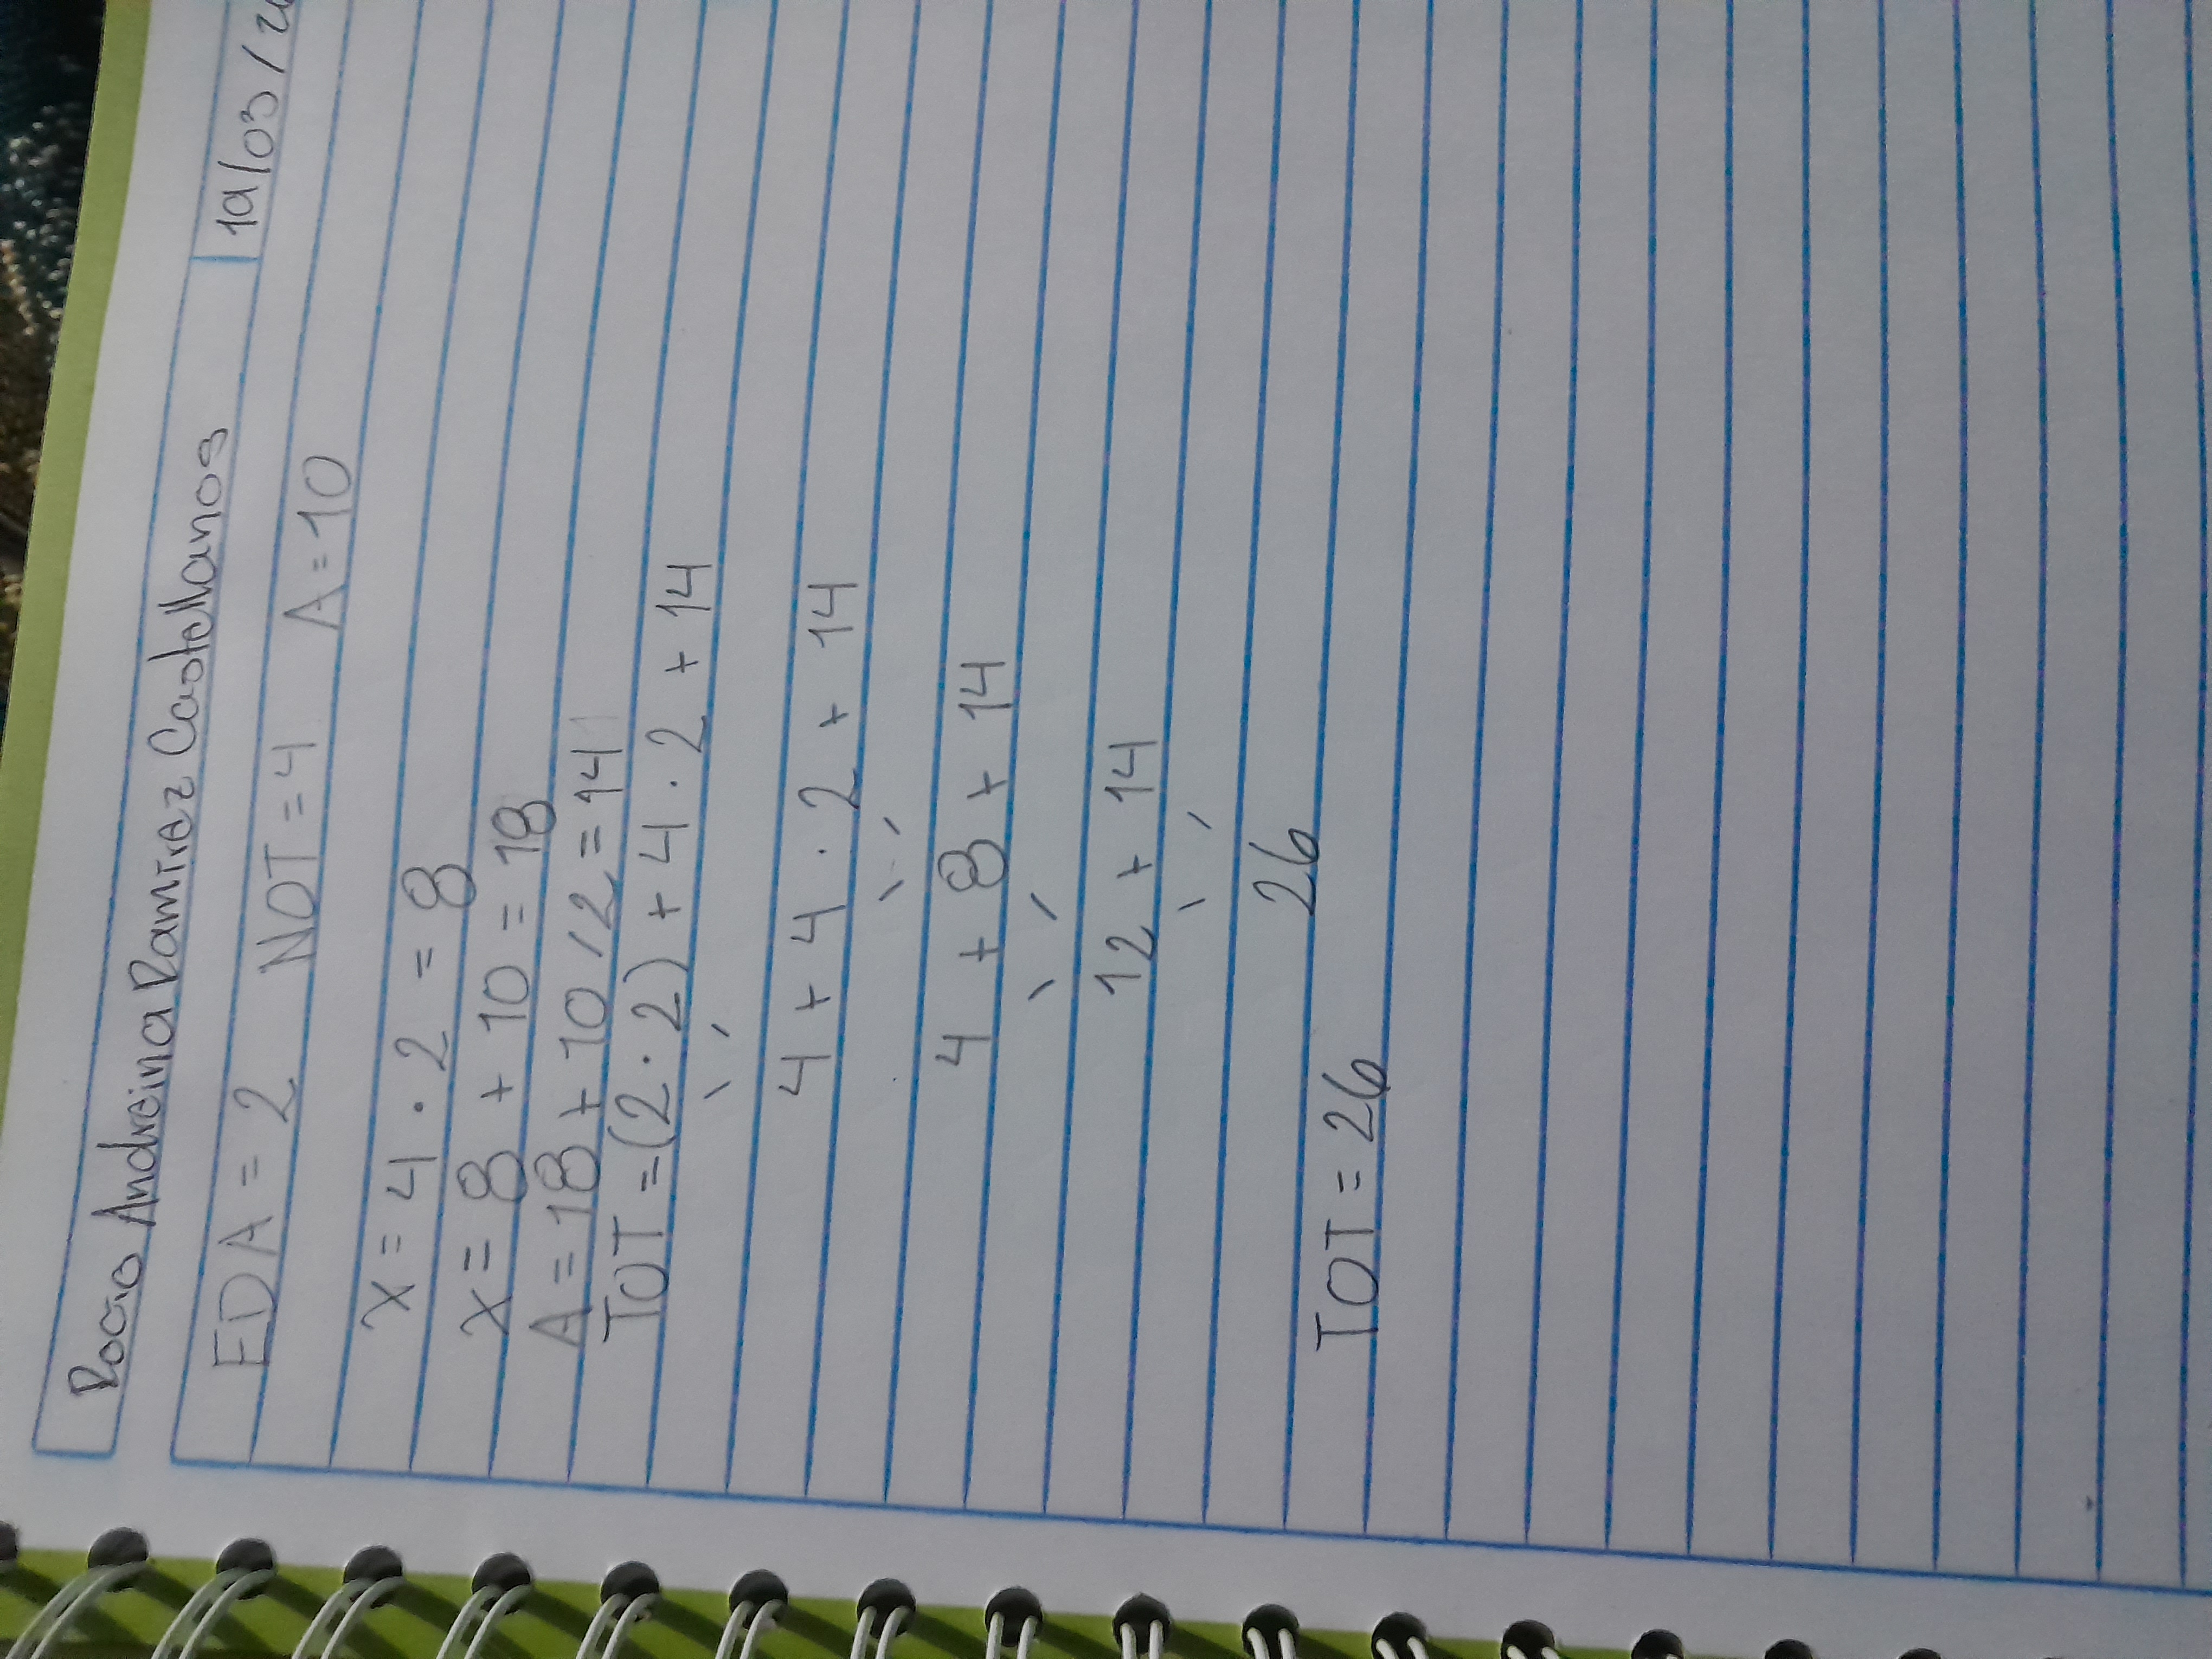 Rocio Andreina Ramirez Castellanos
19/03/2
EDA = 2 NOT = 4 A = 10
X = 4 · 2 = 8
X = 8 + 10 = 18
A = 18 + 10 / 2 = 14
TOT = (2 · 2) + 4 · 2 + 14
4 + 4 · 2 + 14
4 + 8 + 14
12 + 14
26
TOT = 26